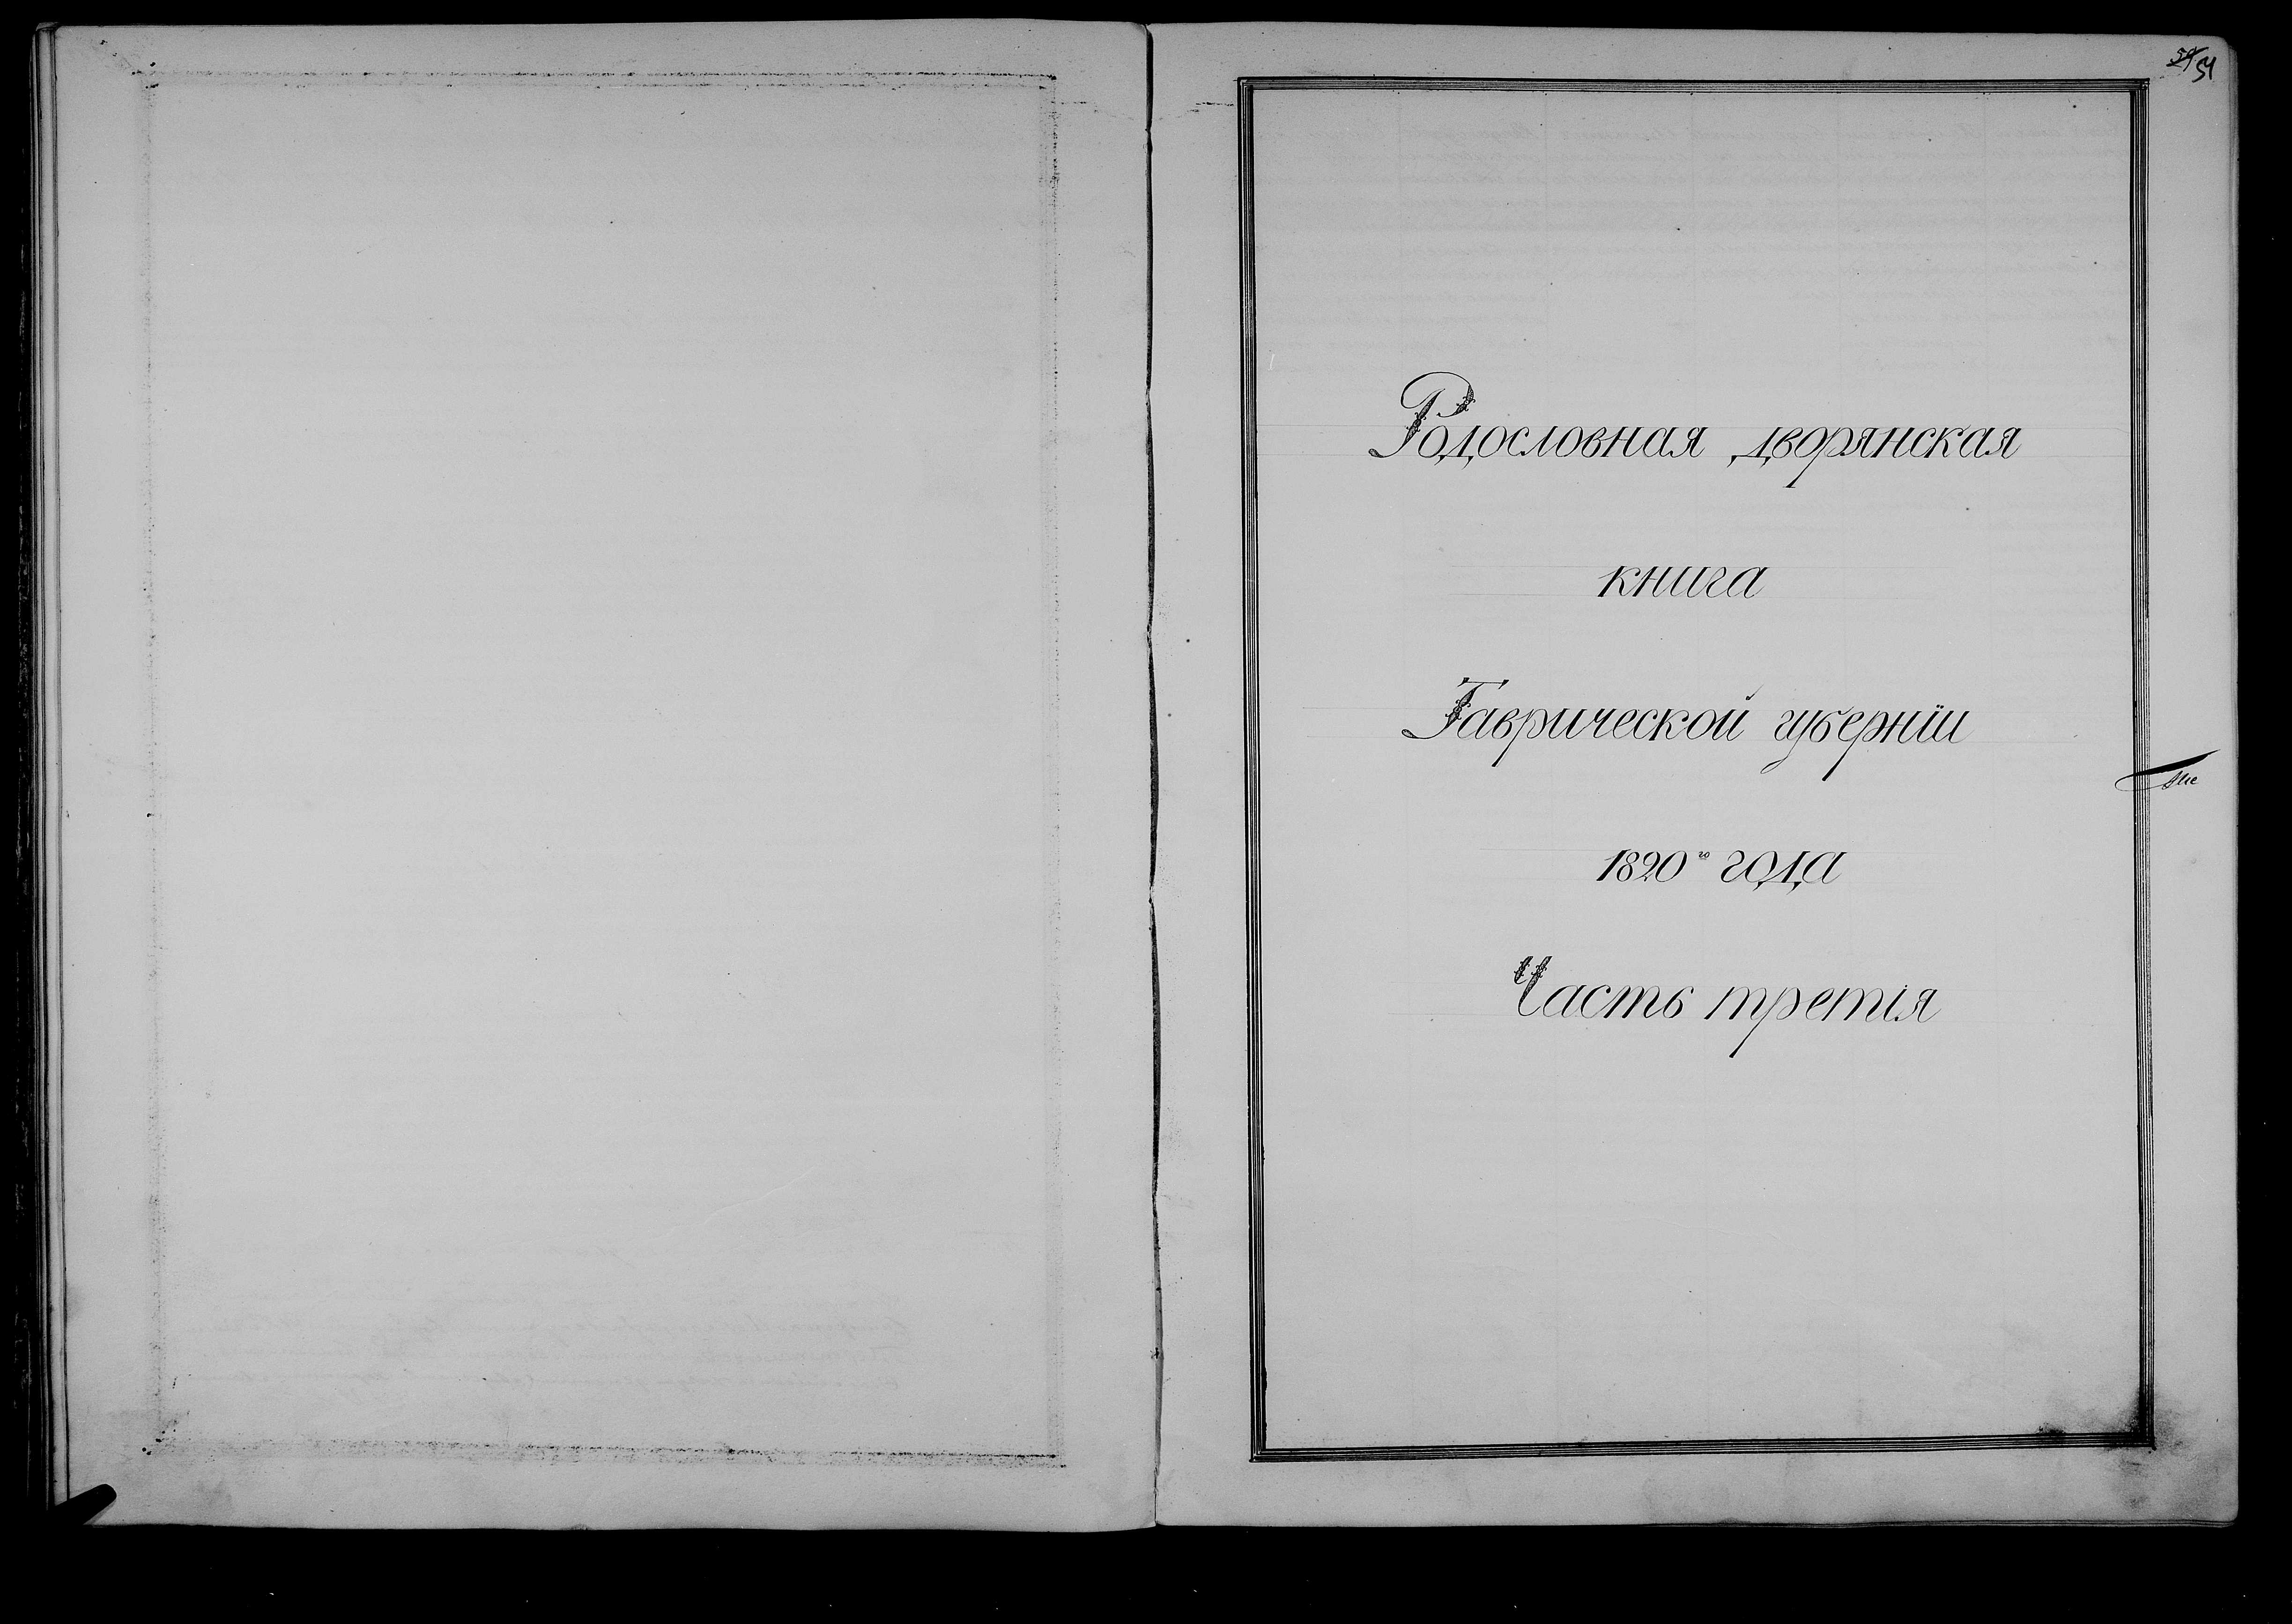 54
51
Родословная дворянская
книга
Таврической губернiи
1890го года
Часть третiя